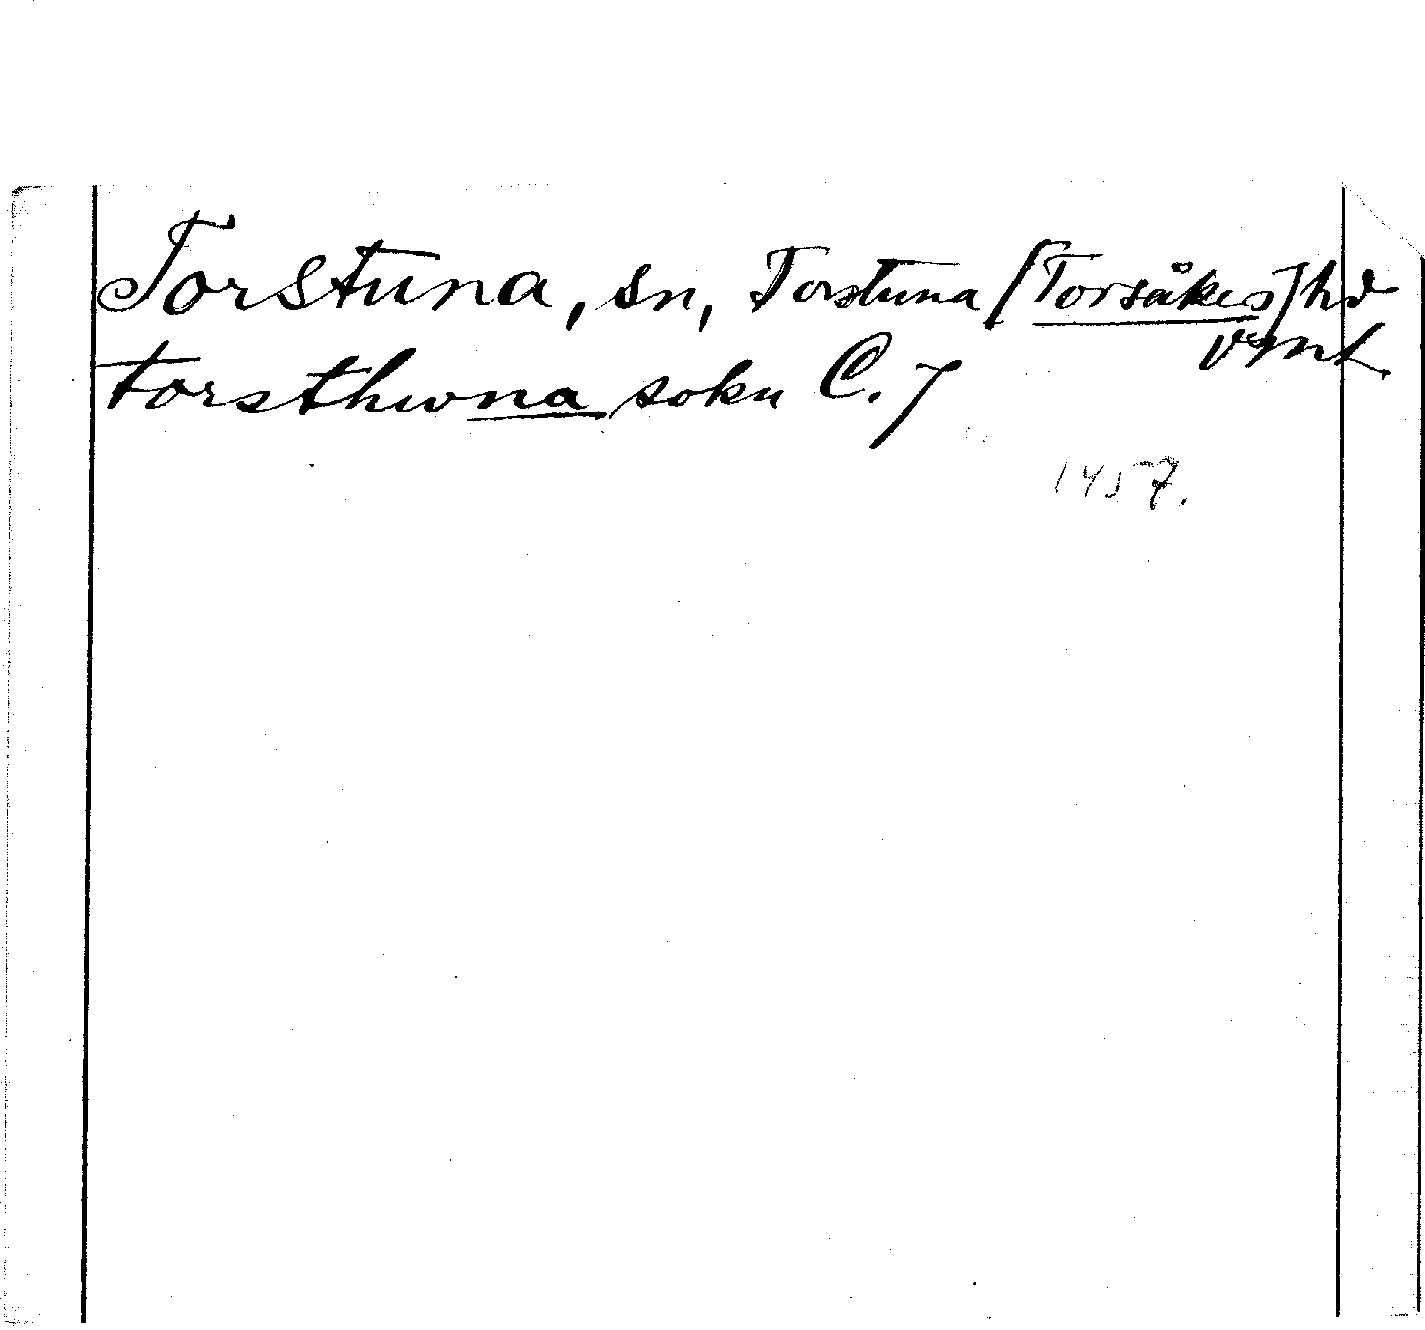 Torstuna, sn, Torstuna (Torsåkes) hd
Vsml
torsthwna sokn C. 7
1457.